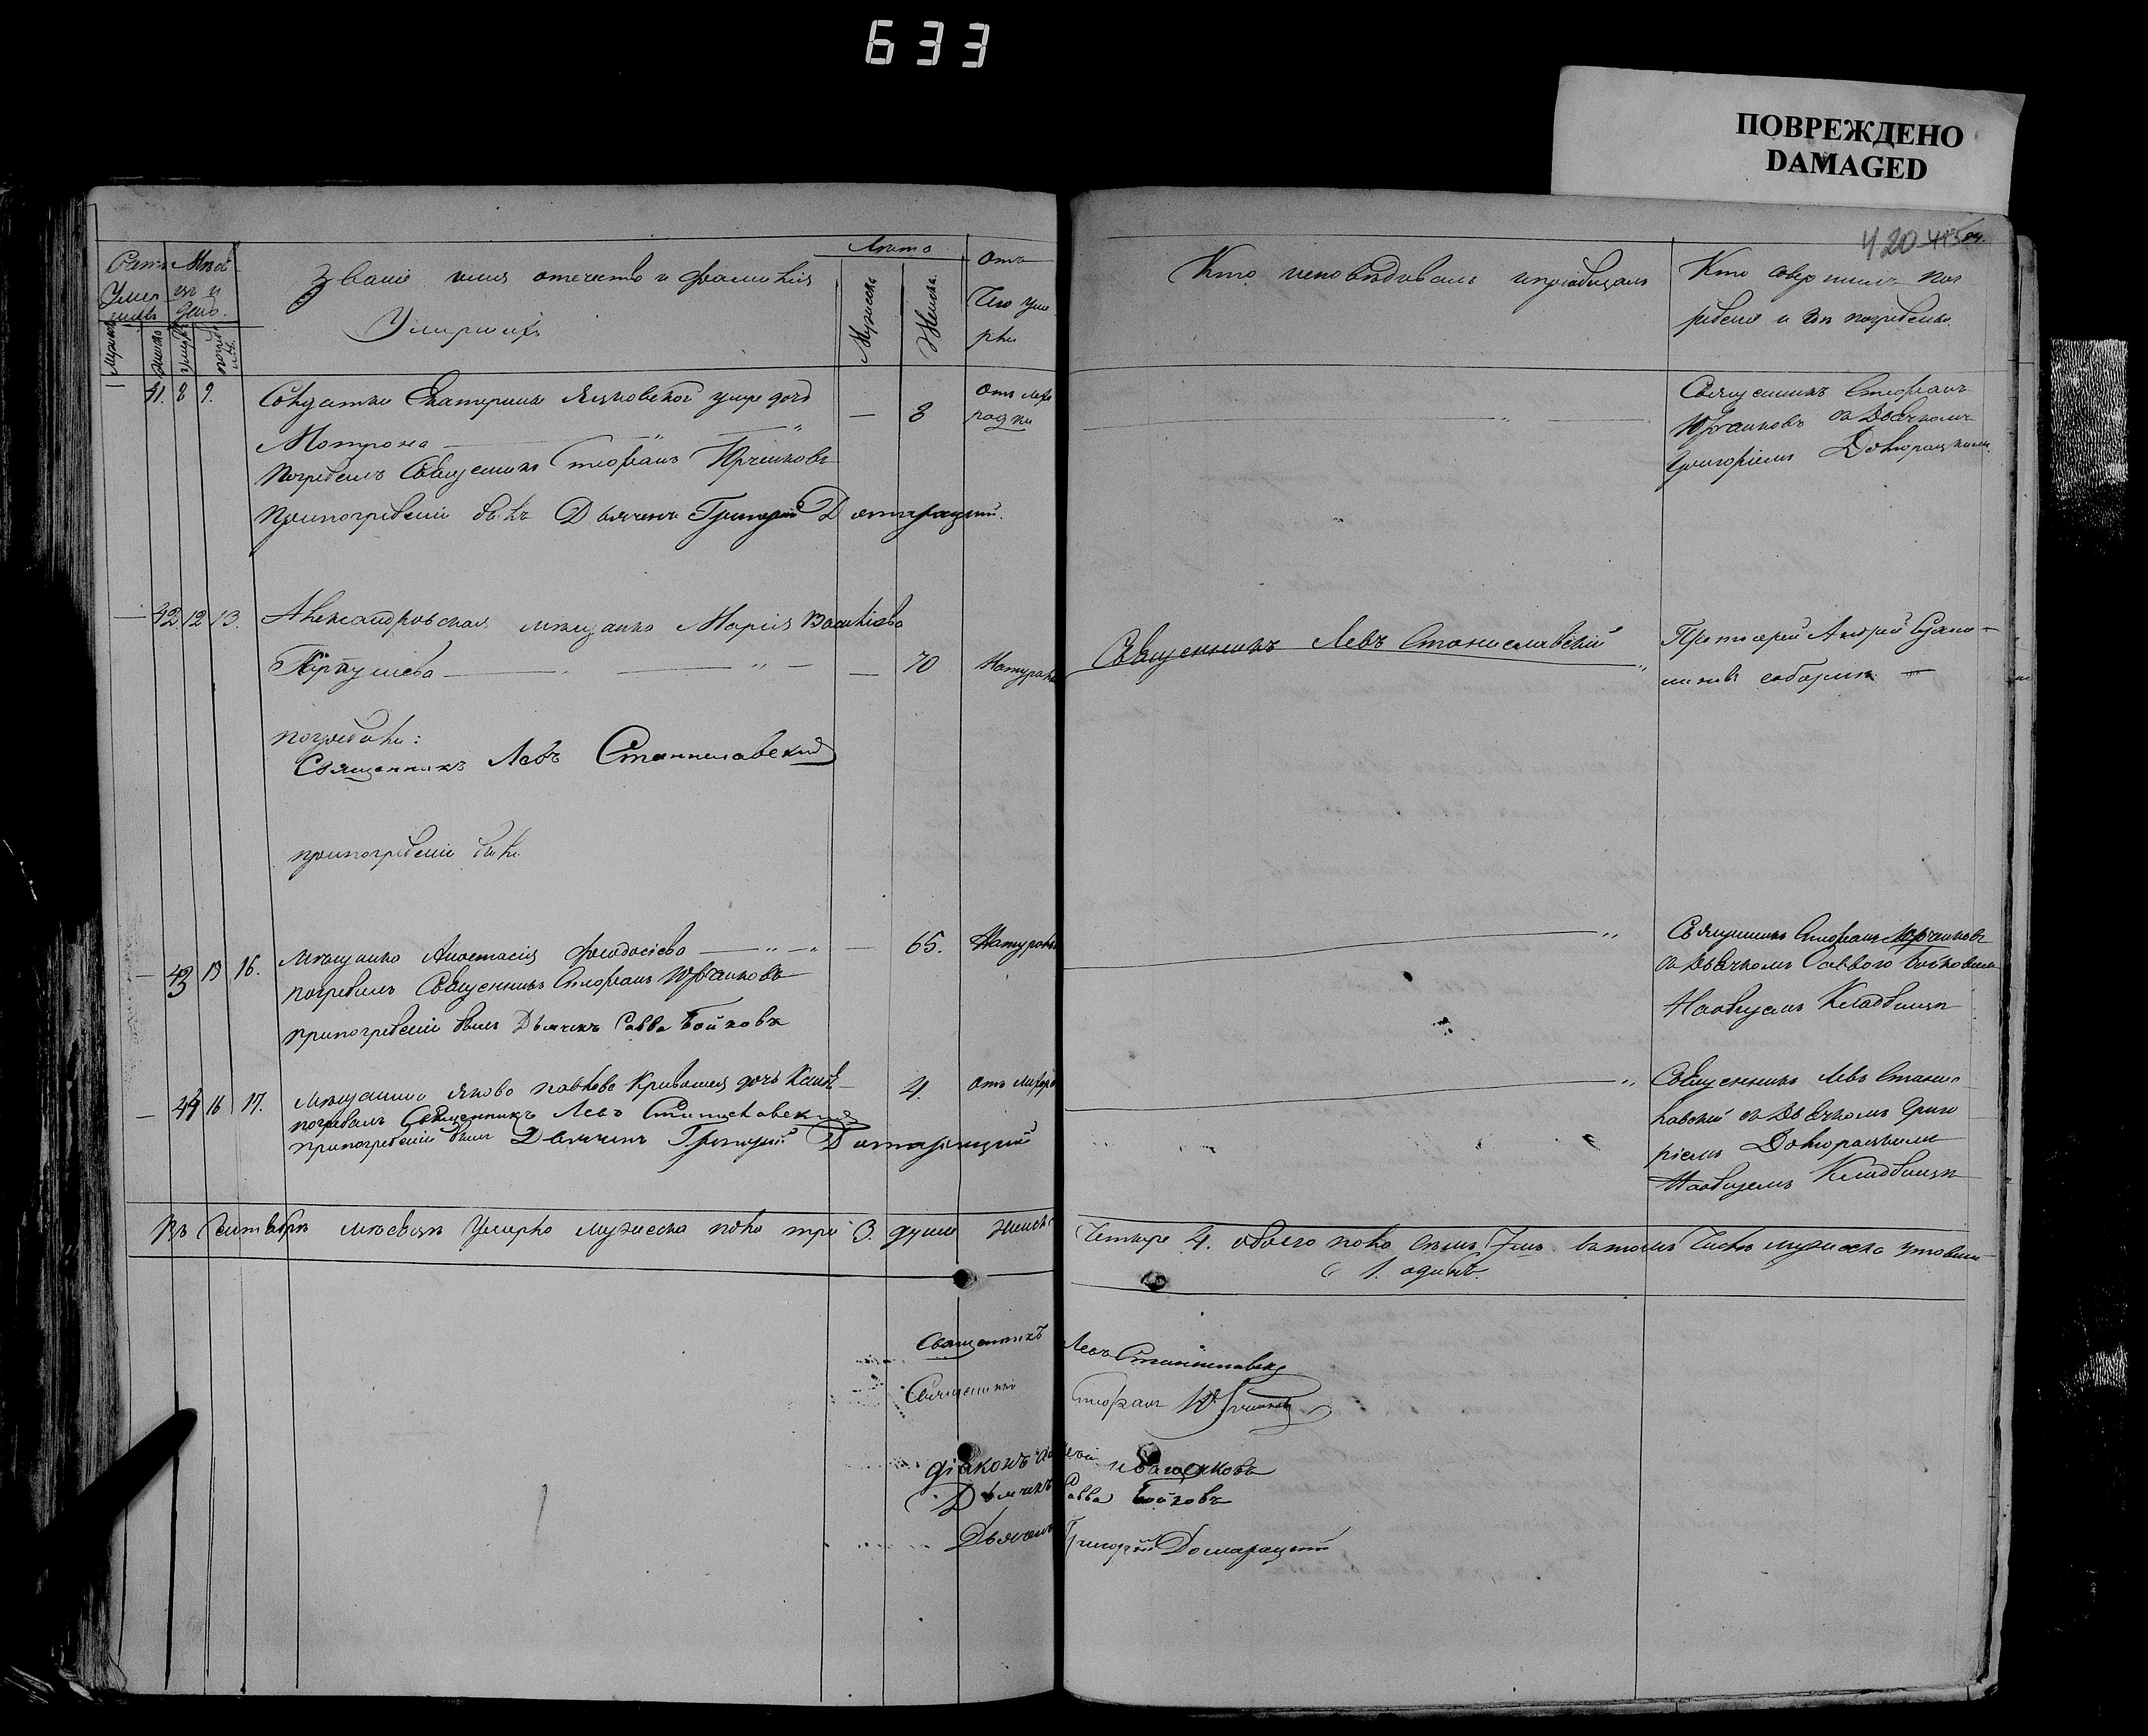 633
ПОВРЕЖДЕНО
DAMAGED
420
Счетъ Умер
шихъ
Мѣсяцъ и
день.
Званіе имя отечество и фамилія
Умершихъ
Лѣта
Мужеска
Женска
Отъ
Чего уме
рли
Кто исповѣдывалъ и пріобщалъ
Кто совершилъ пог
ребеніе и гдѣ погребены.
41. 8 9.
Солдатки Екатерины умре дочь
Мотрона
8
Погребалъ Священникъ Стефанъ Юрченковъ
При погребеніи былъ Дьячекъ Григорій Домарацкій.
Священникъ Стефанъ
Юрченковъ съ Дьячкомъ
Григоріемъ Домарацкимъ
42. 12 13.
Александровская мѣщанка Марія Василіева
70
Натурально
Священникъ Левъ Станиславскій
Протоіерей Андрей
соборнѣ
погребали:
Священникъ Левъ Станиславскій
при погребеніи были.
43 15 16.
Мѣщанка Анастасія Феодосіева
65.
Натурально
погребалъ Священникъ Стефанъ Юрченковъ
при погребеніи былъ Дьячекъ Савва Бойковъ
Священникъ Стефанъ Юрченковъ
съ Дьячкомъ Саввою Бойковымъ
На общемъ Кладбищѣ
44 16 17.
Мѣщанина Якова Павлова дочь
4.
погребалъ Священникъ Левъ Станиславскій
при погребеніи былъ Дьячекъ Григорій Домарацкій
Священникъ Левъ Станис
лавскій съ Дьячкомъ Григо
ріемъ Домарацкимъ
На общемъ Кладбищѣ
Въ Сентябрѣ мѣсяцѣ Умерло мужеска пола три 3. души женска Четыре 4. обоего пола семь 7мь. въ томъ Числѣ мужеска
1. одинъ.
Священникъ Левъ Станиславскій
Священникъ Стефанъ Юрченковъ
Діаконъ
Дьячекъ Савва Бойковъ
Дьячекъ Григорій Домарацкій